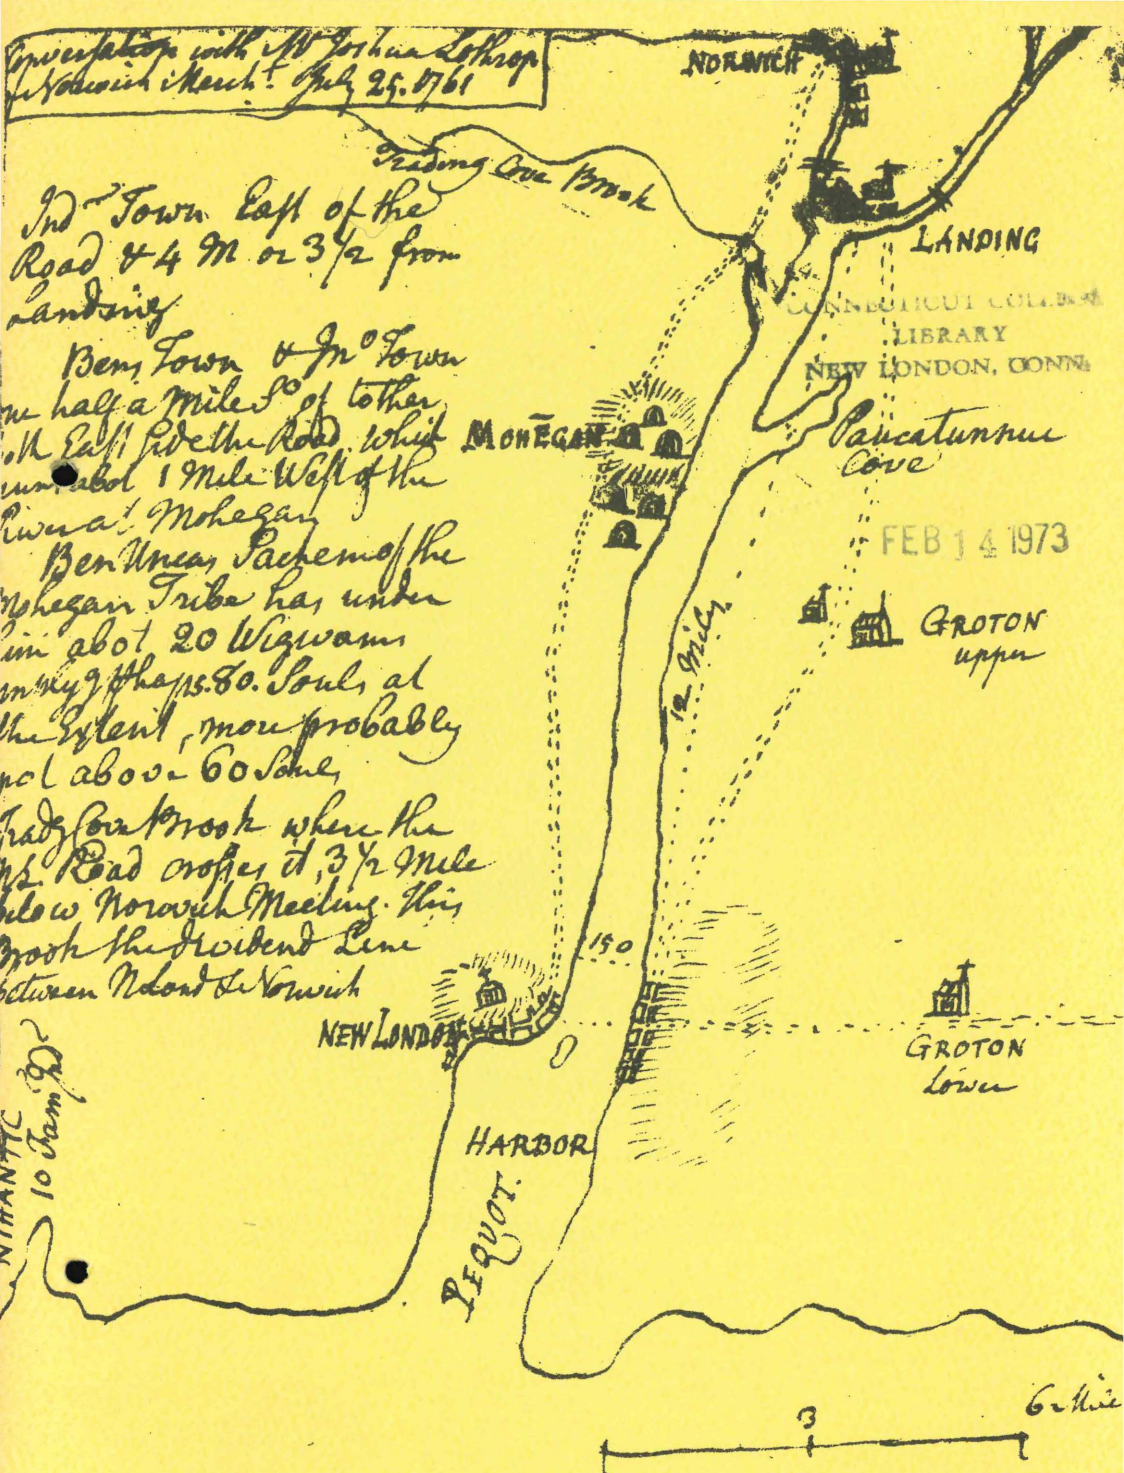 Conversation with Mr Joshua Lothrop
of Norwich Merchт. July 25. 1761
NORWICH
Trading Cove Brook
LANDING
Indn Town East of the
Road & 4 M or 3 1/2 from
Landing
Bens Town & Mo Town
one half a Mile So of tother
on East side the Road which
runs abot 1 Mile West of the
River at Mohegan
Ben Uncas Sachem of the
Mohegan Tribe has under
him abot 20 Wigwams
phaps. 80. Souls at
the Extent, more probably
not above 60 Souls
Tradg Cove Brook where the
Road crosses it, 3 1/2 Mile
below Norwich Meeting. this
Brook the dividend Line
between N Lond & Norwich
CONNECTICUT COLLEGE
LIBRARY
NEW LONDON, CONN.
MOHEGAN
Paucatunnuc
Cove
FEB 14 1973
GROTON
upper
12 Miles
150
NEW LONDON
GROTON
Lower
NIHANTIC
10 Fam Ind
HARBOR
PEQUOT.
3
6 Mile